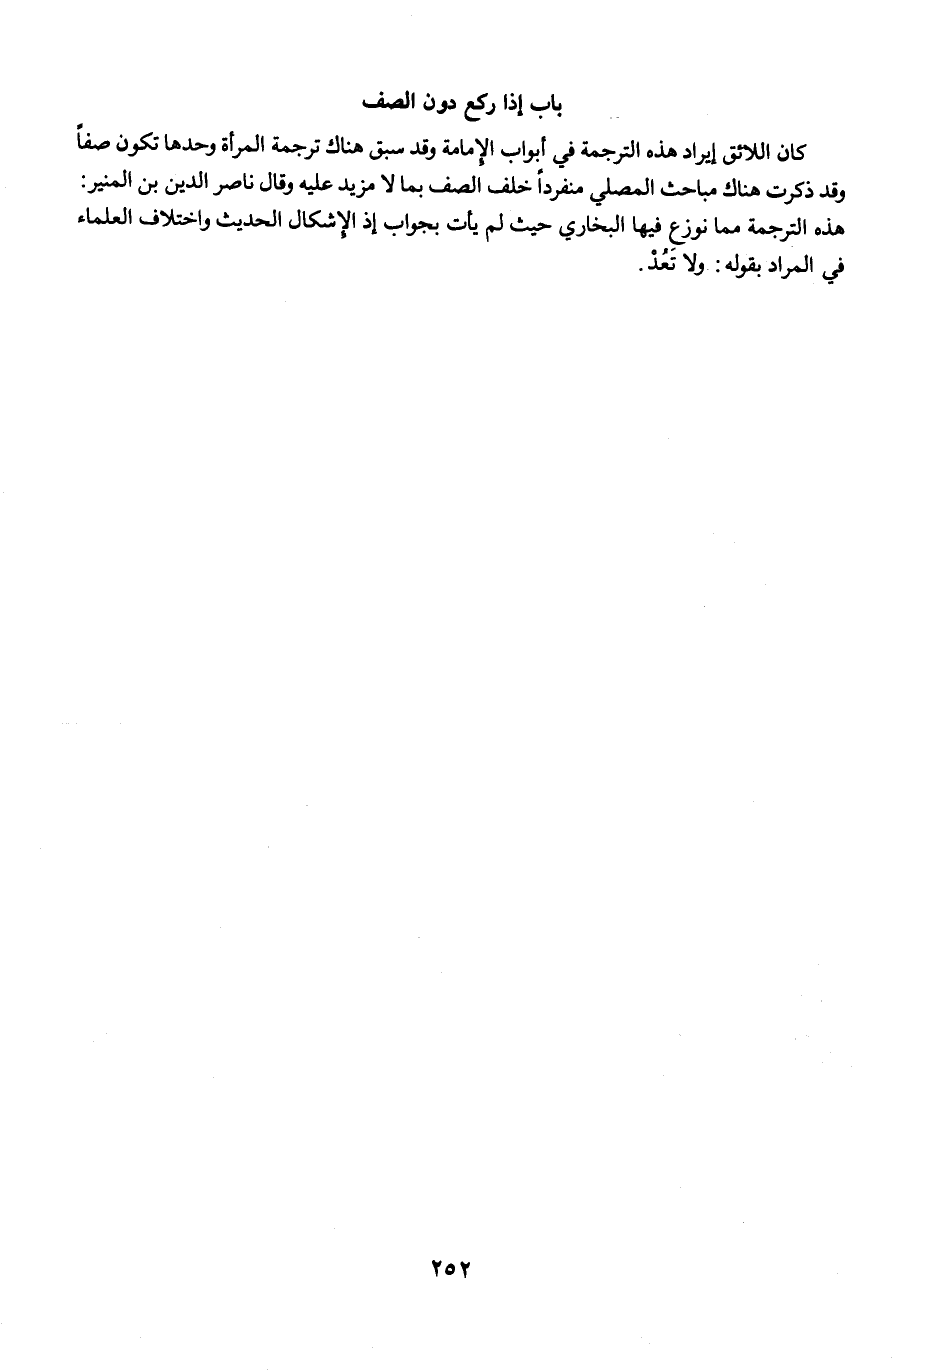 باب إذا ركع دون الصف
كان اللائق إيراد هذه الترجمة في أبواب الإمامة وقد سبق هناك ترجمة المرأة وحدها تكون صفاً
وقد ذكرت هناك مباحث المصلي منفرداً خلف الصف بما لا مزيد عليه وقال ناصر الدين بن المنير:
هذه الترجمة مما نوزع فيها البخاري حيث لم يأت بجواب إذ الإشكال الحديث واختلاف العلماء
في المراد بقوله: ولا تَعُدْ.
٢٥٢